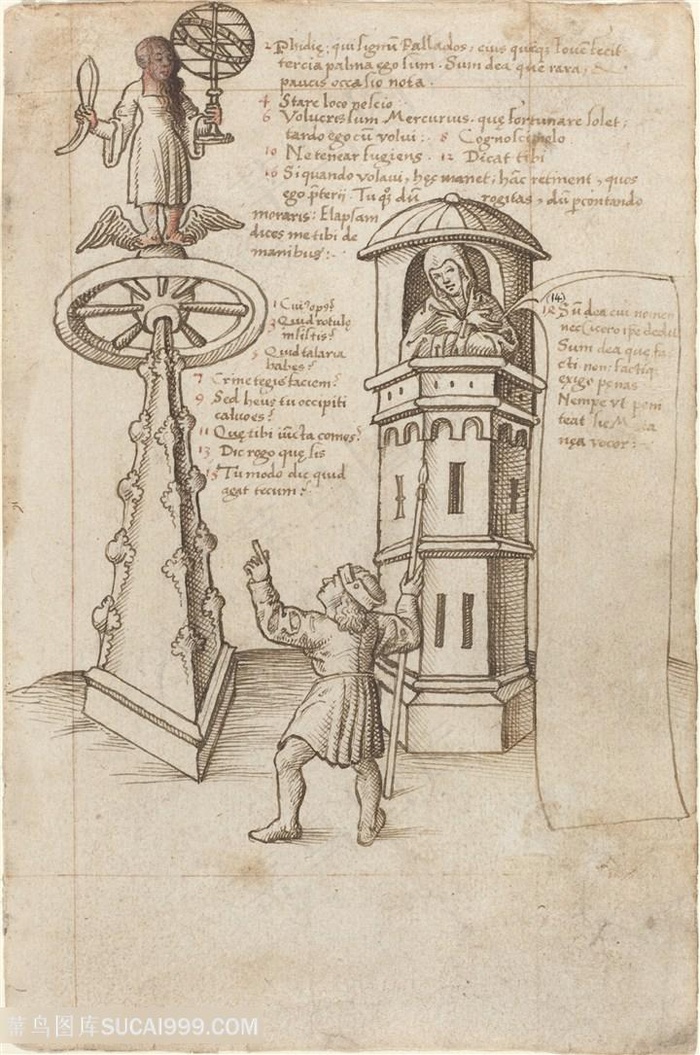 2 Phidię; qui signũ Pallados; eius quęq; Iouē fecit
tercia palma ego sum. Sum dea quę rara,
paucis occasio nota.
4 Stare loco nescio
6 Volucris sum Mercurius. quę fortunare solet;
tardo ego cũ volui:. 8 Cognosci nolo
10 Ne tenear fugiens. 12 Dicat tibi
16 Si quando volaui, hęc manet; hãc retinent, quos
ego p̄terii. Tu q; dũ rogitas, dũ pcontando
moraris: Elapsam
dices me tibi de
manibus:.
1 Cui' op9?
3 Quid rotulę
insistis?
5 Quid talaria
habes?
7 Crine tegis faciem?
9 Sed heus tu occipiti
calua es?
11 Quę tibi iũcta comes?
13 Dic rogo quę sis
15 Tu modo dic quid
agat tecum?
(14)
12 Sũ dea cui nomen
nec Cicero ipe dedit
Sum dea quę fa
cti non factiq;
exigo penas
Nempe vt peni
teat sic M
nęa vocor:
菜鸟图库SUCAI999.COM